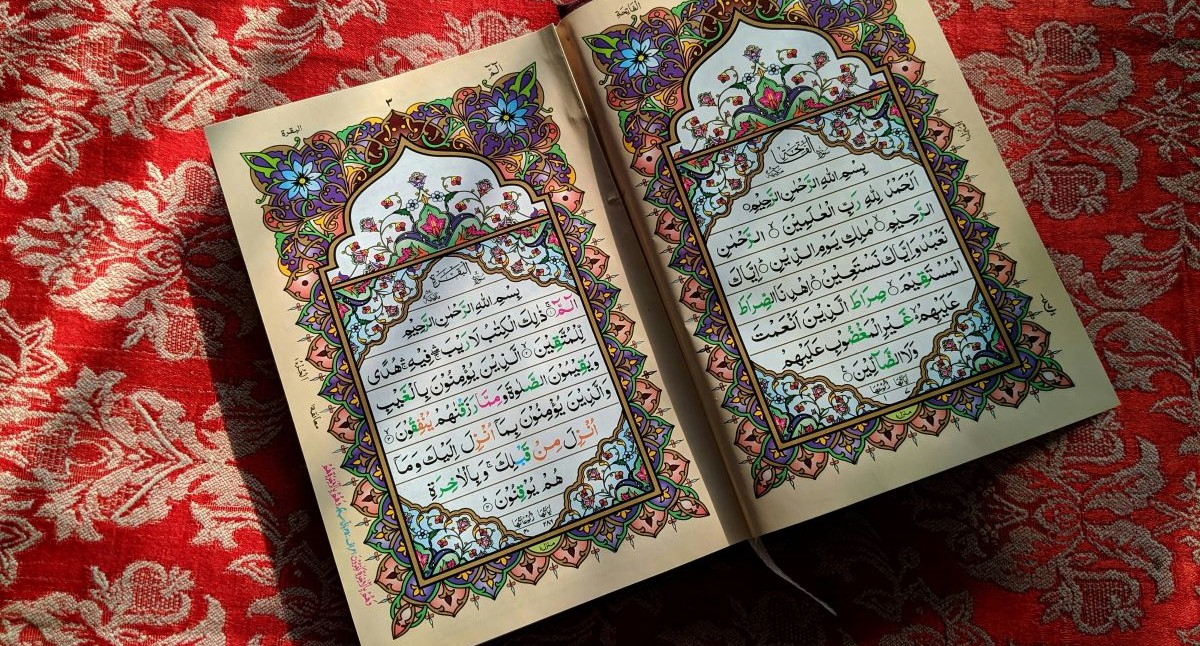 الفاتحة
بِسْمِ اللهِ الرَّحْمٰنِ الرَّحِيْمِ
اَلْحَمْدُ لِلّٰهِ رَبِّ الْعٰلَمِيْنَ ۙ الرَّحْمٰنِ
الرَّحِيْمِ ۙ مٰلِكِ يَوْمِ الدِّيْنِ ؕ اِيَّاكَ
نَعْبُدُ وَاِيَّاكَ نَسْتَعِيْنُ ؕ اِهْدِنَا الصِّرَاطَ
الْمُسْتَقِيْمَ ۙ صِرَاطَ الَّذِيْنَ اَنْعَمْتَ
عَلَيْهِمْ ۙ غَيْرِ الْمَغْضُوْبِ عَلَيْهِمْ
وَلَا الضَّآلِّيْنَ
الٓمّٓ
٣
البقرة
بِسْمِ اللهِ الرَّحْمٰنِ الرَّحِيْمِ
الٓمّٓ ۚ ذٰلِكَ الْكِتٰبُ لَا رَيْبَ ۛ فِيْهِ ۛ هُدًى
لِّلْمُتَّقِيْنَ ۙ الَّذِيْنَ يُؤْمِنُوْنَ بِالْغَيْبِ
وَيُقِيْمُوْنَ الصَّلٰوةَ وَمِمَّا رَزَقْنٰهُمْ يُنْفِقُوْنَ ۙ
وَالَّذِيْنَ يُؤْمِنُوْنَ بِمَآ اُنْزِلَ اِلَيْكَ وَمَآ
اُنْزِلَ مِنْ قَبْلِكَ ۚ وَبِالْاٰخِرَةِ
هُمْ يُوْقِنُوْنَ ؕ